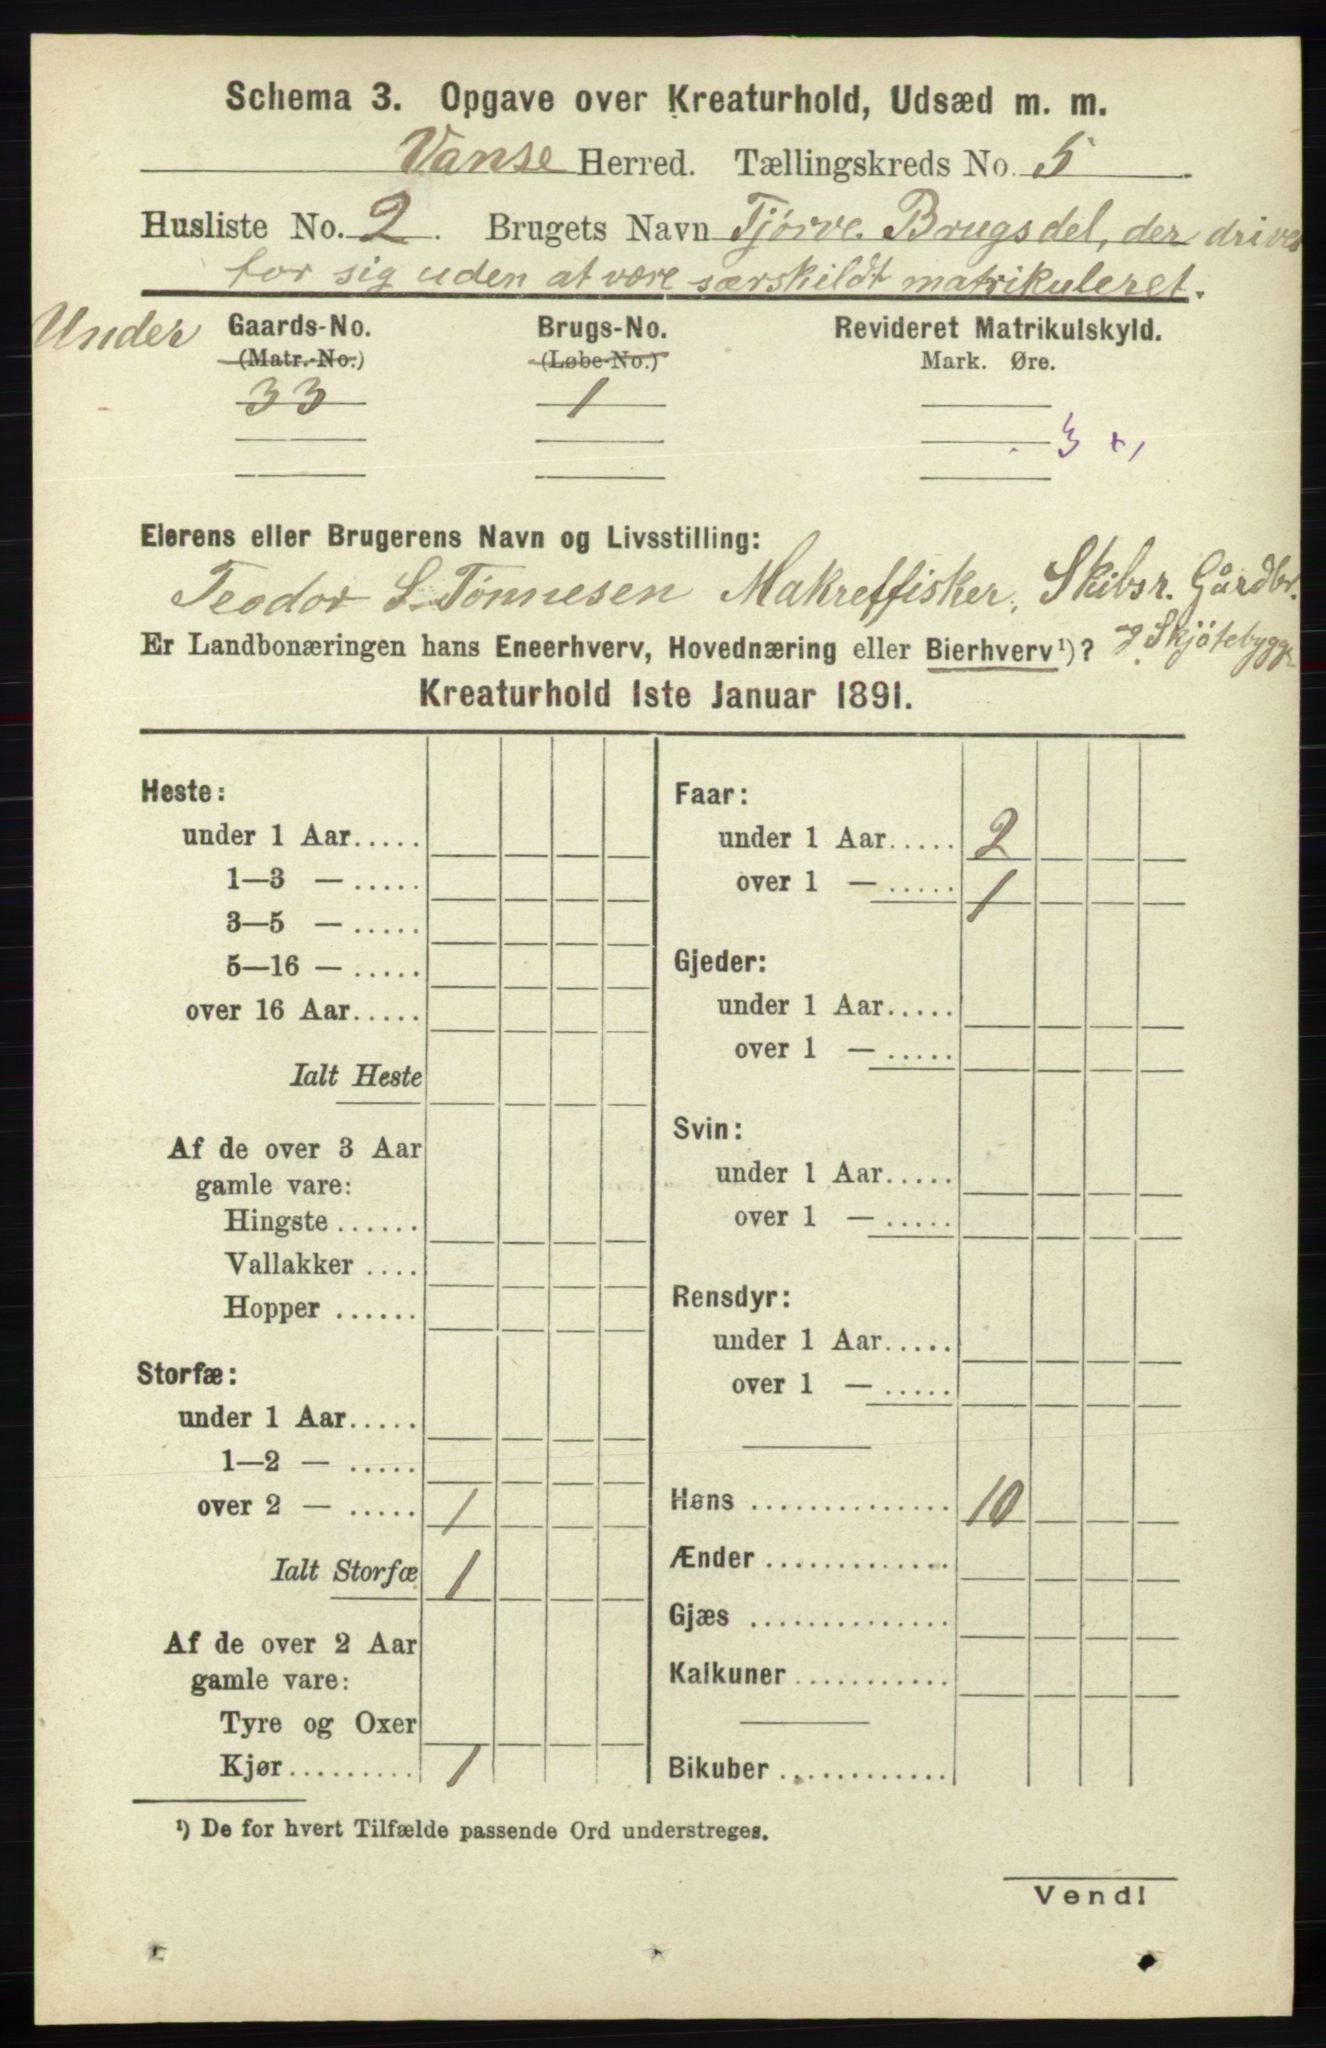 Schema 3. Opgave over Kreaturhold, Udsæd m. m.
Vanse Herred. Tællingskreds No. 5.
Husliste No. 2. Brugets Navn Tjørve. Brugsdel, der drives
for sig uden at være særskildt matrikuleret.
Under Gaards-No. Brugs-No. Revideret Matrikulskyld.
(Matr.-No.) (Løbe-No.) Mark. Øre.
33 1
3 + 1
Eierens eller Brugerens Navn og Livsstilling:
Teodor S. Tønnesen Makrelfisker, Skibsr. Gårdbr.
Er Landbonæringen hans Eneerhverv, Hovednæring eller Bierhverv¹)? Skjøtebygge
Kreaturhold 1ste Januar 1891.
Heste:
under 1 Aar.....
1—3 — .....
3—5 — .....
5—16 — .....
over 16 Aar.....
Ialt Heste
Af de over 3 Aar
gamle vare:
Hingste ......
Vallakker ....
Hopper ......
Storfæ:
under 1 Aar.....
1—2 — .....
over 2 — ..... 1
Ialt Storfæ 1
Af de over 2 Aar
gamle vare:
Tyre og Oxer
Kjør......... 1
Faar:
under 1 Aar..... 2
over 1 — ..... 1
Gjeder:
under 1 Aar.....
over 1 — .....
Svin:
under 1 Aar.....
over 1 — .....
Rensdyr:
under 1 Aar.....
over 1 — .....
Høns .............. 10
Ænder .............
Gjæs ..............
Kalkuner ...........
Bikuber ............
¹) De for hvert Tilfælde passende Ord understreges.
Vend!